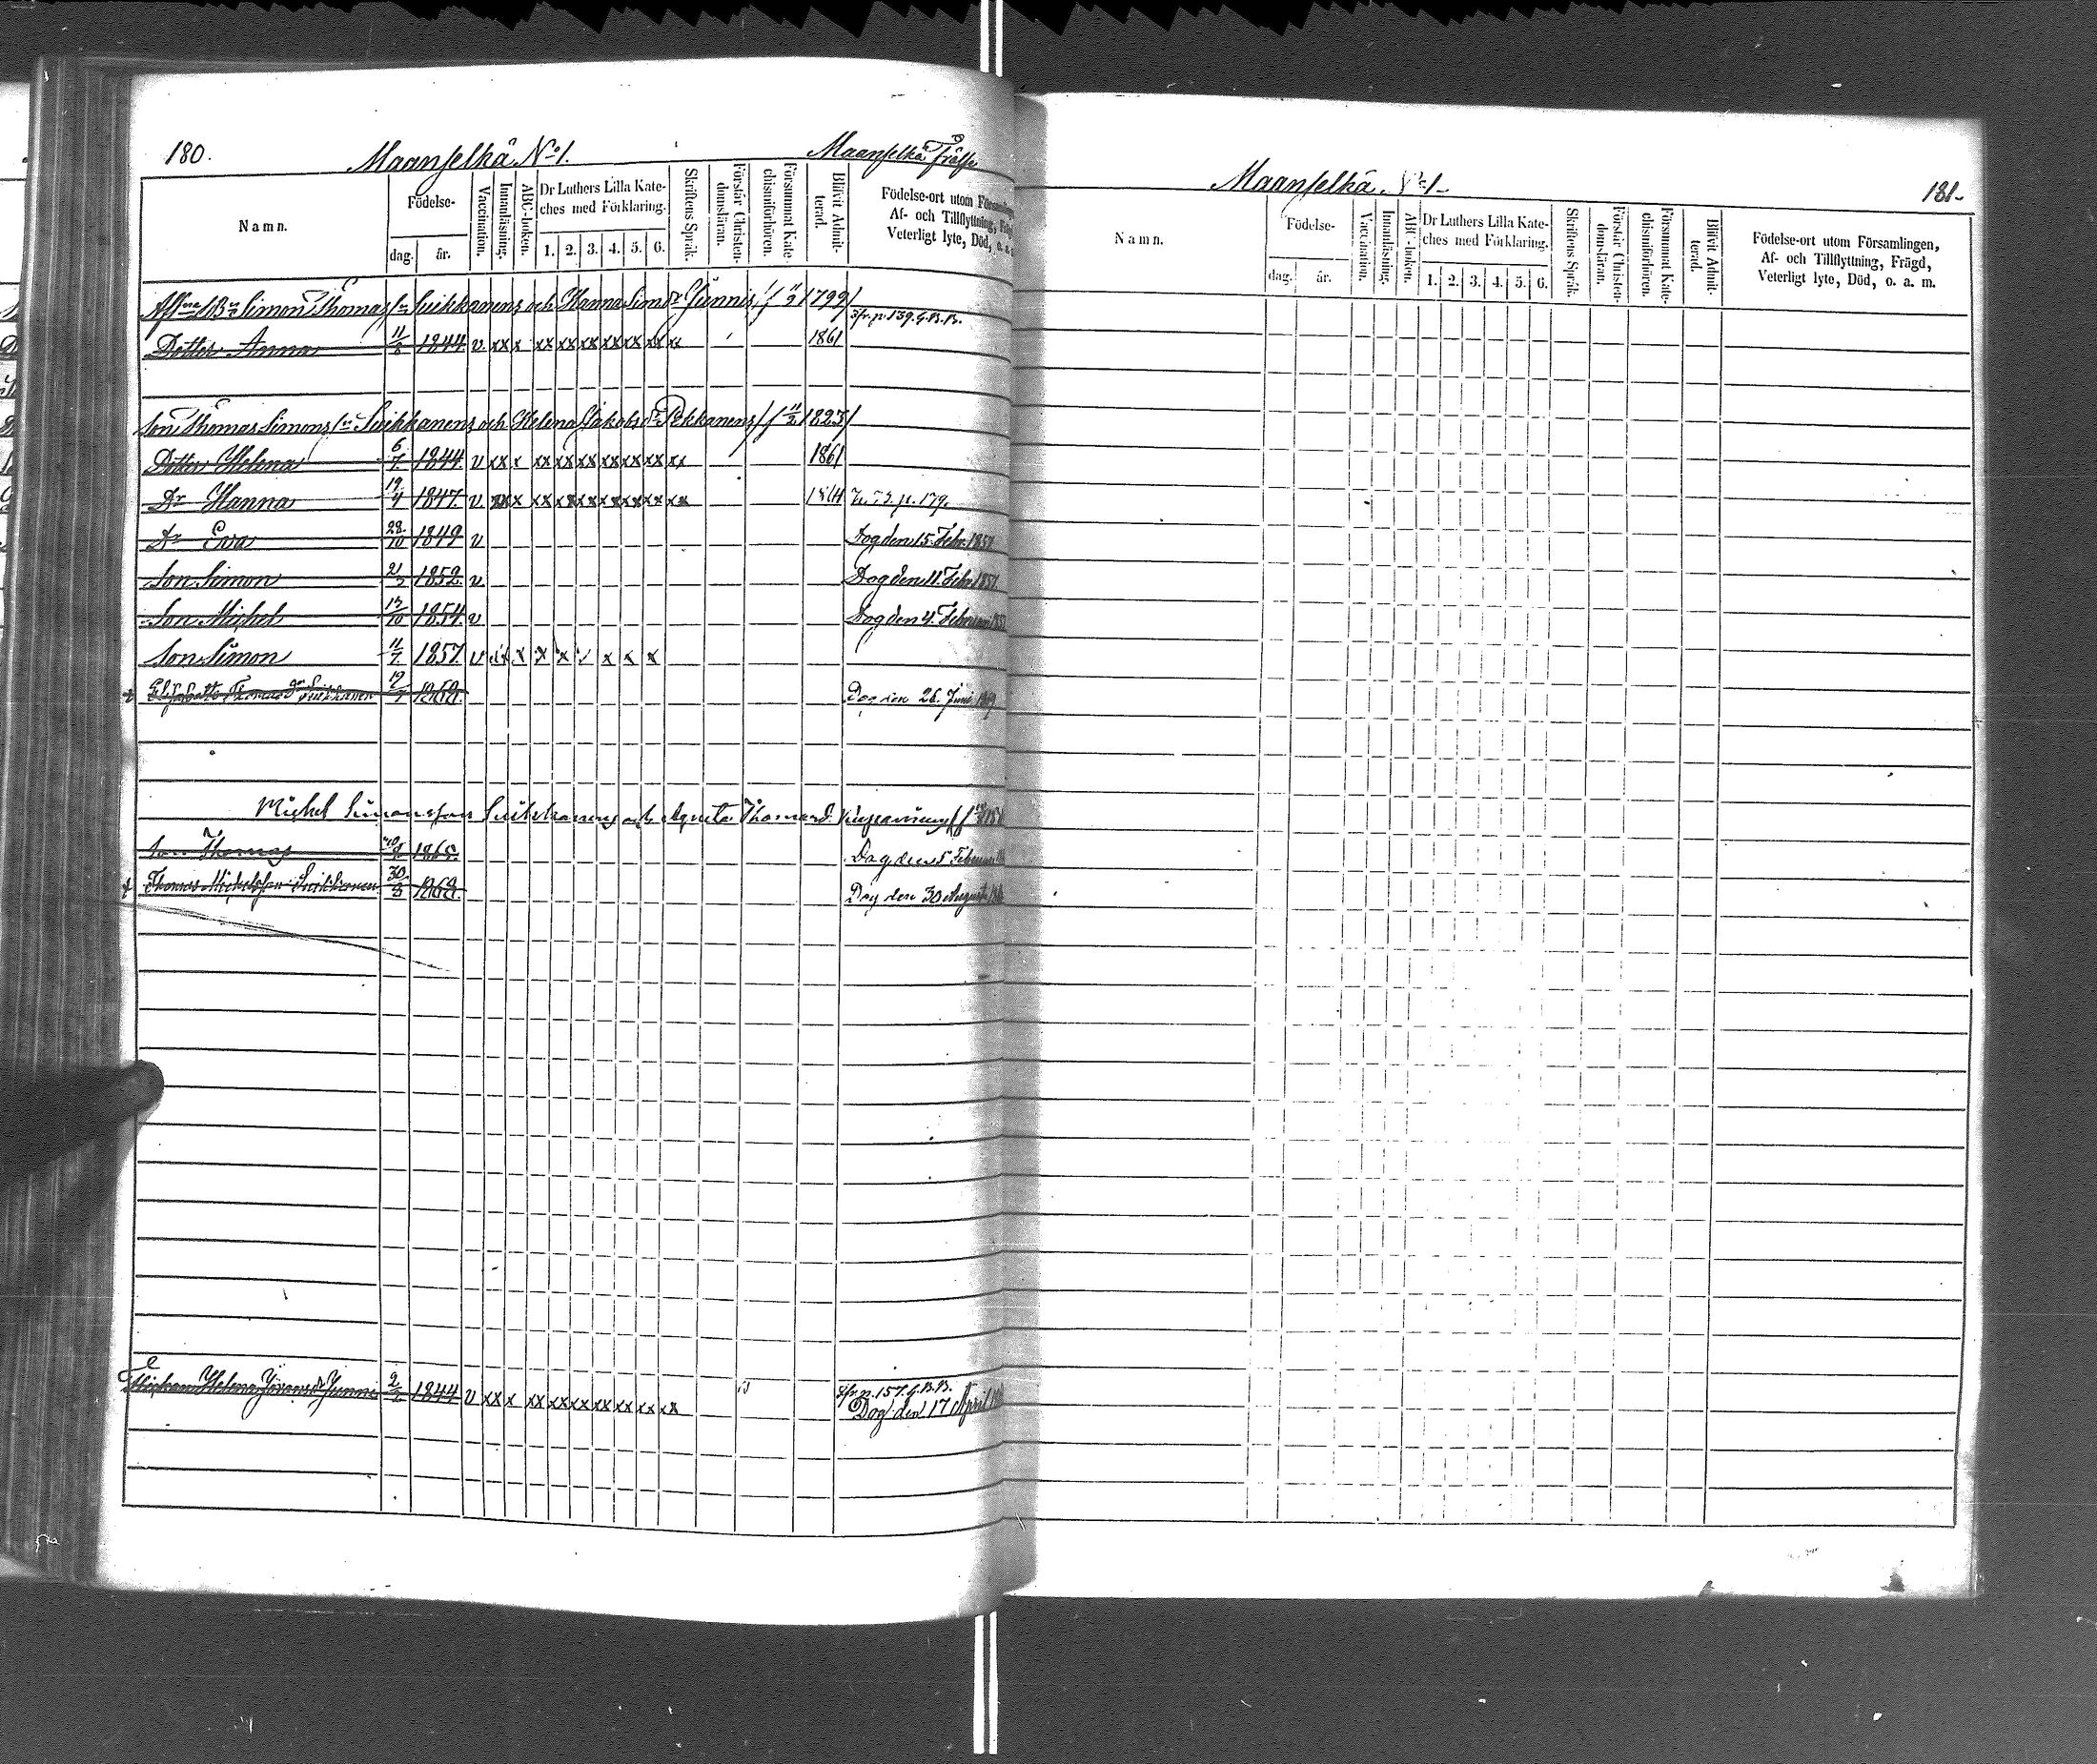 180.
Maanselkä No 1.
Maanselkä Frälse
Namn.
Födelse-
dag.
år.
Vaccination.
Innanläsning.
ABC-boken.
Dr Luthers Lilla Kate-
ches med Förklaring.
1. 2. 3. 4. 5. 6.
Skriftens Språk.
Förstår Christen-
domsläran.
Försummat Kate-
chismiförhören.
Blifvit Admit-
terad.
Födelse-ort utom Församlingen,
Af- och Tillflyttning, Frägd,
Veterligt lyte, Död, o. a. m.
Simon Thomas Suikkanens och Hanna Sim dr Junnis /f 11/2 1799/
p. 139. G.B.B.
Dotter Anna 11/8 1844 v xx x xx xx xx xx xx xx xx 1861
Son Thomas Simons Suikkanens och Helena Jakobs dr Pekkanens /f 11/2 1823/
Dotter Helena 6/7 1844 v xx x xx xx xx xx xx xx xx 1861
Dr Hanna 19/4 1847 v xx x xx xx xx xx xx xx xx 1864 p. 179.
Dr Eva 28/10 1849 v Dog den 15 Febr. 1857
Son Simon 1852 v Dog den 11 Febr 1857
Son Michel 13/10 1854 v Dog den 4 Februari 1857
Son Simon 11/7 1857 v x x x x x x x
Elisabetta Thomas dr Suikkanen 1868. Dog den 26. Juni 1869
Michel Simonsson Suikkanens och Agneta Thomas d.
Son Thomas 1865. Dog den 5 Februari
Thomas Michelsson Suikkanen 30/3 1868. Dog den 30 Augusti
Helena Jörans dr Junni 2/2 1844 v xx x xx xx xx xx xx xx xx p. 157. G.B.B.
Dog den 17 April
Maanselkä No 1
181.
Namn.
Födelse-
dag.
år.
Vaccination.
Innanläsning.
ABC-boken.
Dr Luthers Lilla Kate-
ches med Förklaring.
1. 2. 3. 4. 5. 6.
Skriftens Språk.
Förstår Christen-
domsläran.
Försummat Kate-
chismiförhören.
Blifvit Admit-
terad.
Födelse-ort utom Församlingen,
Af- och Tillflyttning, Frägd,
Veterligt lyte, Död, o. a. m.